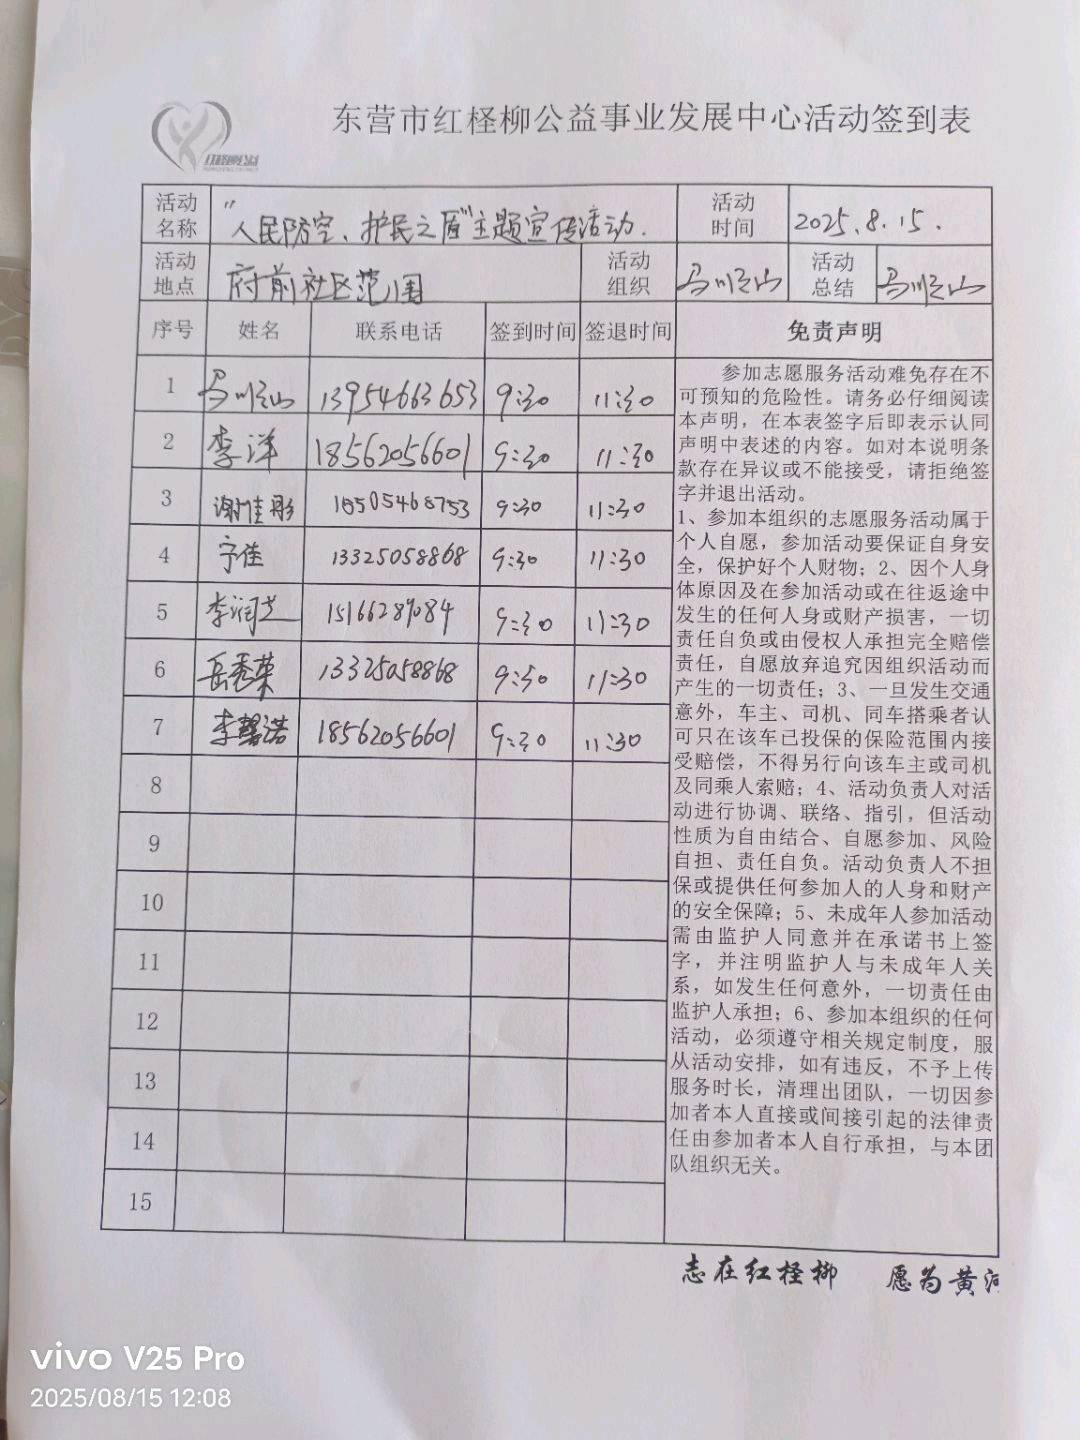 东营市红柽柳公益事业发展中心活动签到表
红柽柳公益
活动名称 “人民防空、护民之盾”主题宣传活动. 活动时间 2025.8.15.
活动地点 府前社区范围 活动组织 马顺山 活动总结 马顺山
序号 姓名 联系电话 签到时间 签退时间 免责声明
1 马顺山 13954663653 9:30 11:30
2 李洋 18562056601 9:30 11:30
3 谢佳彤 18505468753 9:30 11:30
4 宁佳 13325058868 9:30 11:30
5 李润芝 15166289084 9:30 11:30
6 岳秀荣 13325058868 9:30 11:30
7 李馨诺 18562056601 9:30 11:30
8
9
10
11
12
13
14
15
参加志愿服务活动难免存在不
可预知的危险性。请务必仔细阅读
本声明，在本表签字后即表示认同
声明中表述的内容。如对本说明条
款存在异议或不能接受，请拒绝签
字并退出活动。
1、参加本组织的志愿服务活动属于
个人自愿，参加活动要保证自身安
全，保护好个人财物；2、因个人身
体原因及在参加活动或在往返途中
发生的任何人身或财产损害，一切
责任自负或由侵权人承担完全赔偿
责任，自愿放弃追究因组织活动而
产生的一切责任；3、一旦发生交通
意外，车主、司机、同车搭乘者认
可只在该车已投保的保险范围内接
受赔偿，不得另行向该车主或司机
及同乘人索赔；4、活动负责人对活
动进行协调、联络、指引，但活动
性质为自由结合、自愿参加、风险
自担、责任自负。活动负责人不担
保或提供任何参加人的人身和财产
的安全保障；5、未成年人参加活动
需由监护人同意并在承诺书上签
字，并注明监护人与未成年人关
系，如发生任何意外，一切责任由
监护人承担；6、参加本组织的任何
活动，必须遵守相关规定制度，服
从活动安排，如有违反，不予上传
服务时长，清理出团队，一切因参
加者本人直接或间接引起的法律责
任由参加者本人自行承担，与本团
队组织无关。
志在红柽柳 愿为黄河
vivo V25 Pro
2025/08/15 12:08